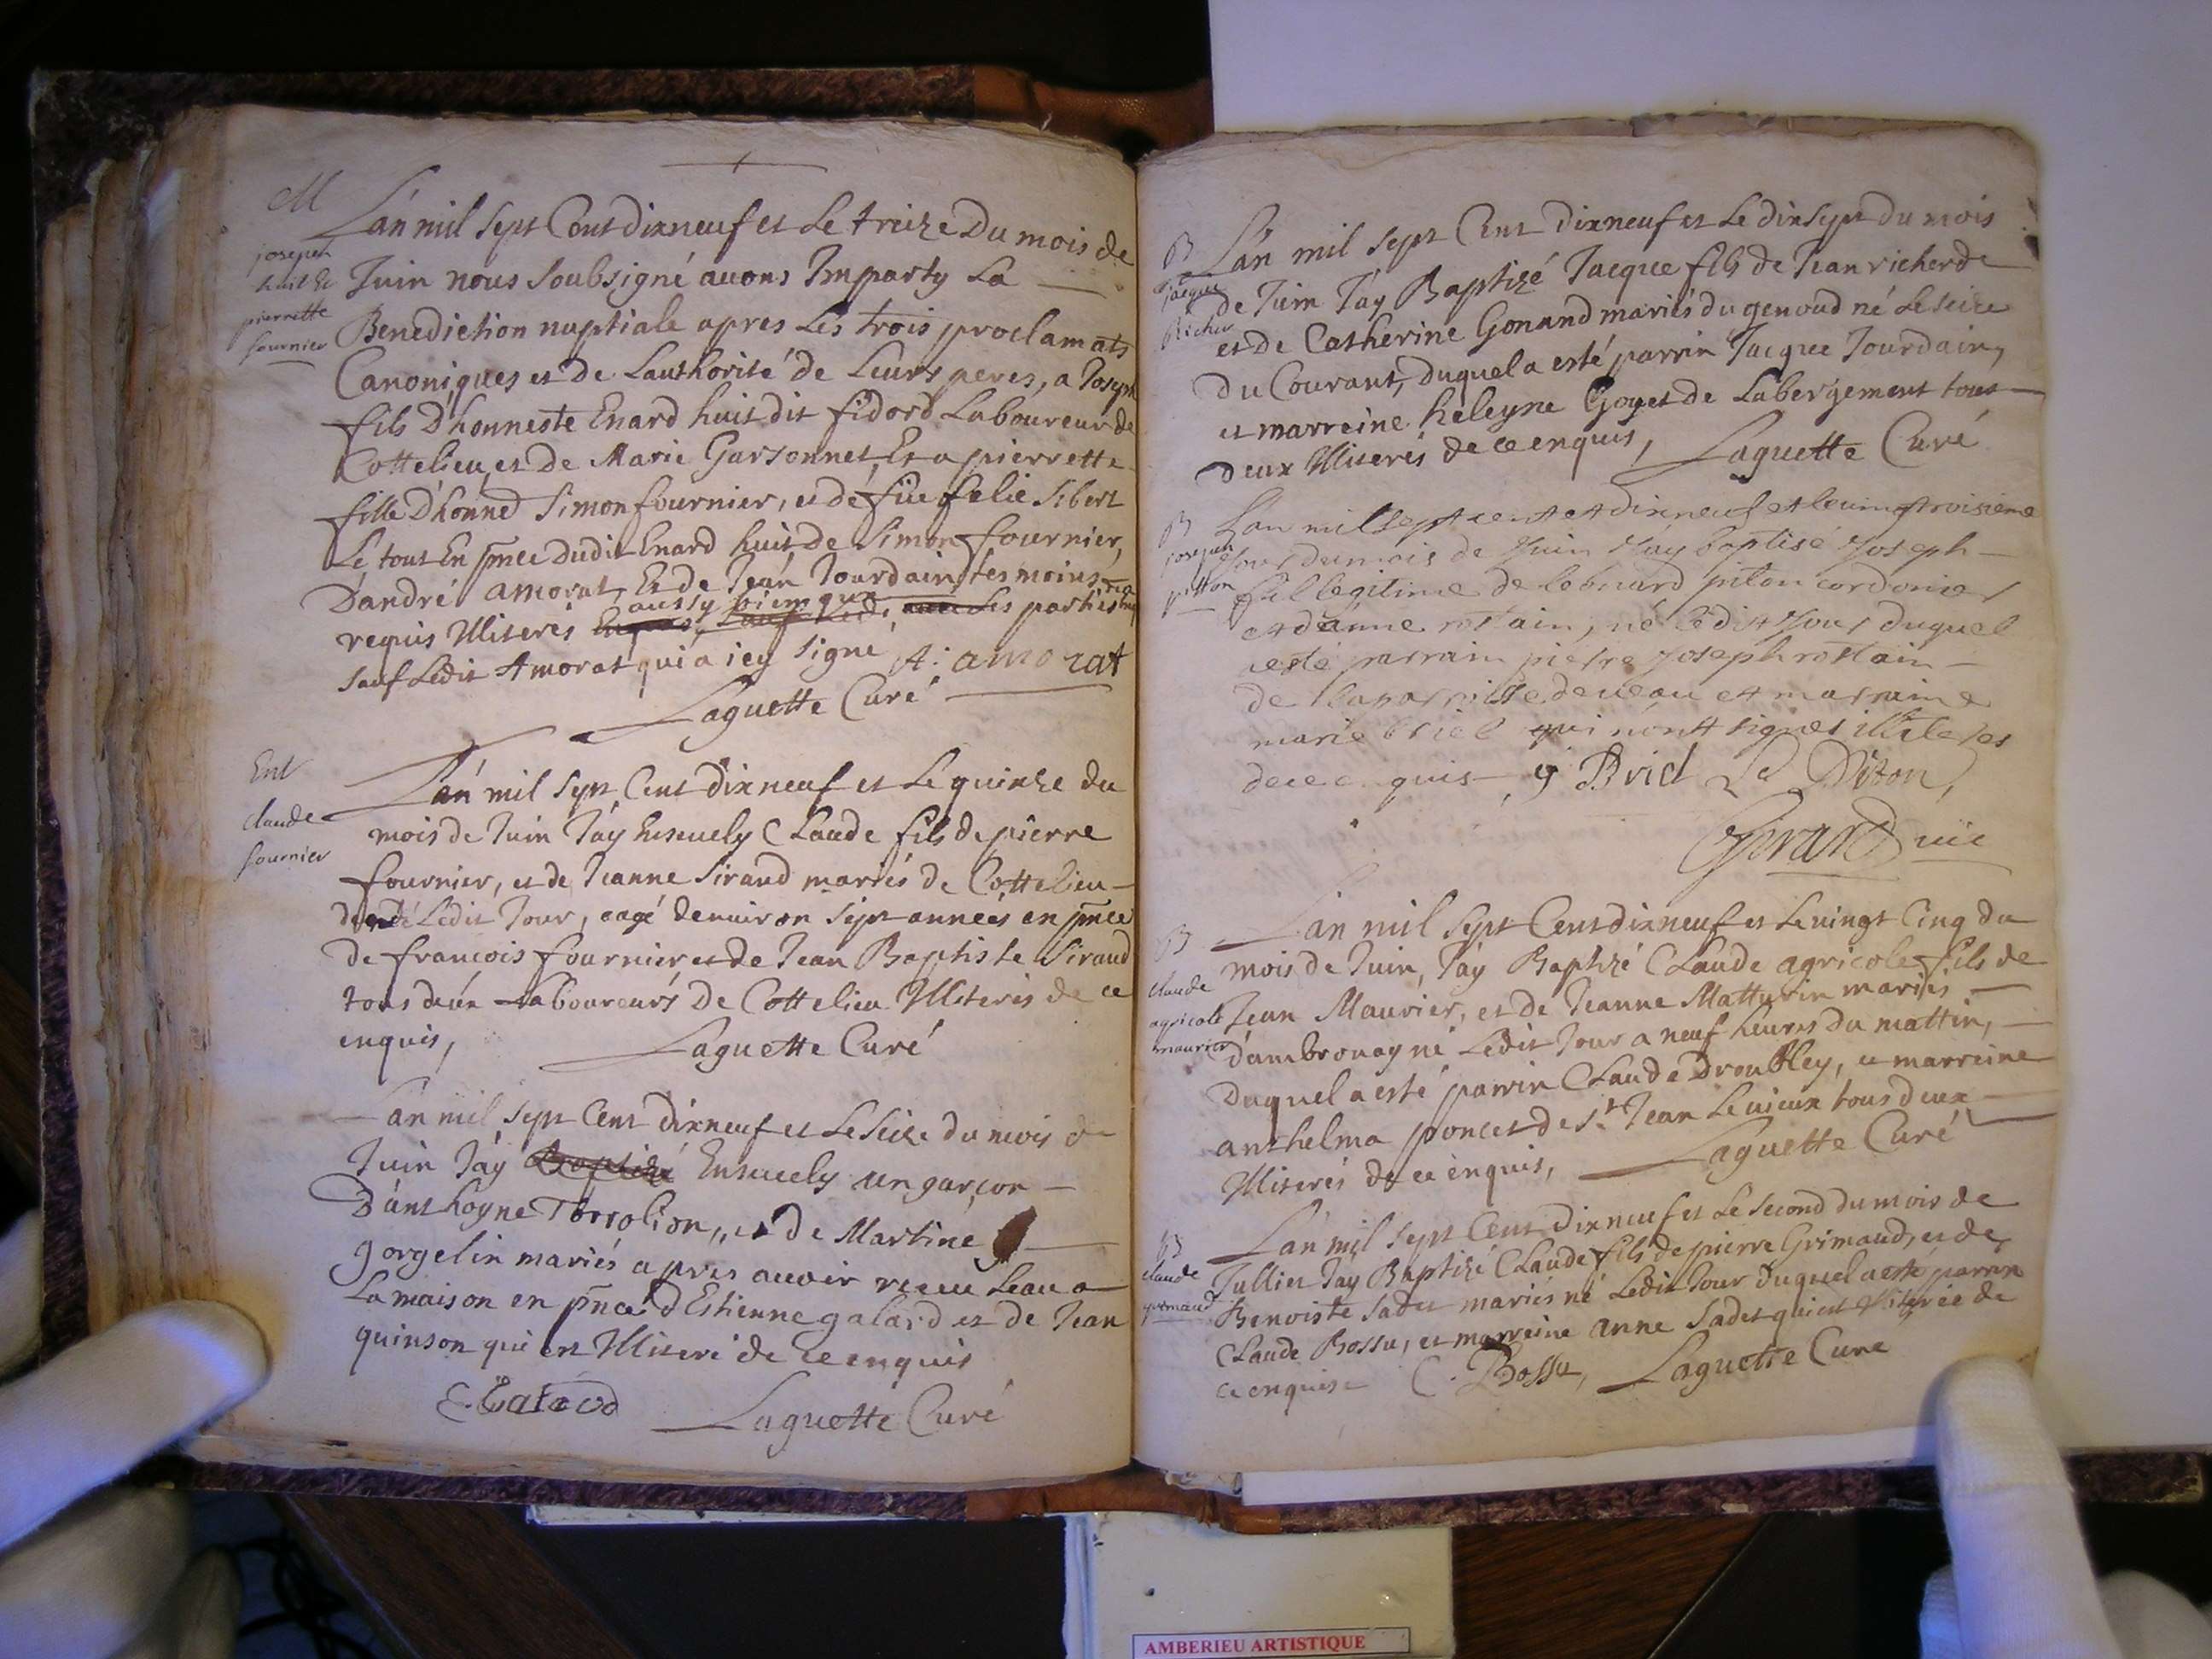 M
joseph
huit &
pierrette
fournier
Lán mil sept Cent dixneuf et Le treize Du mois de
Juin nous soubsigné auons Imparty La
Benediction nuptiale apres Les trois proclamats
Canoniques et de Lauthorité de Leurs peres, a Joseph
fils D'honneste Enard huit dit fidord Laboureur de
Cottelieu, et de Marie Garsonnet, Et a pierrette
fille D'honned Simon fournier, et de fue felie Sibert
Le tout En pnce dudit Enard huit de Simon fournier,
D'andré amorat, Et de Jean Jourdain tesmoins
requis Illiterés aussy bien que Les parties
Sauf Ledit Amorat qui a icy signé A: amorat
Laguette Curé
Ent
claude
fournier
Lán mil sept Cent dixneuf et Le quinze du
mois de Juin J'ay Enseuely Claude fils de pierre
fournier, et de Jeanne Siraud mariés de Cottelieu
Ledit Jour, eagé denuiron sept années en pnce
de francois fournier et de Jean Baptiste Siraud
tous deux Laboureurs de Cottelieu Illiterés de ce
enquis, Laguette Curé
Lán mil sept Cent dixneuf et Le seize du mois de
Juin J'ay Baptizé Enseuely un garçon
D'anthoyne Torrolion, et de Martine
gorgelin mariés apres auoir receu Leau a
La maison en pnce d'Estienne galard et de Jean
quinson qui est Illiteré de ce enquis
E. Galard Laguette Curé
B
jacque
Richer
Lán mil sept Cent dixneuf et Le dixsept du mois
de Juin J'ay Baptizé Jacque fils de Jean richerde
et de Catherine Gonand mariés du genoud né Le seize
du Courant, duquel a esté parrin Jacque Jourdain,
et marreine heleyne Goyet de Labergement tous
deux Illiterés de ce enquis, Laguette Curé
B
joseph
pitton
Lan mil sept cent et dixneuf et le uingt troisieme
Jour du mois de Juin J'ay baptisé Joseph
fil legitime de leonard piton cordonier
et d'anne rostain, né ledit Jour duquel
a esté parrain pierre Joseph rostain
de la parroisse de ueau et marraine
marie briel qui nont signés illiteres
de ce enquis g Brid Le Piton,
Girard uic
B
claude
agricole
maurier
Lán mil sept Cent dixneuf et Le uingt Cinq du
mois de Juin, J'ay Baptizé Claude agricole fils de
Jean Maurier, et de Jeanne Matturin mariés
d'ambrouay né Ledit Jour a neuf heures du mattin,
Duquel a esté parrin Claude Droubley, et marreine
anthelma poncet de St Jean Le uieux tous deux
Illiterés de ce enquis, Laguette Curé
B
claude
grimaud
Lán mil sept Cent dixneuf et Le second du mois de
Jullier J'ay Baptizé Claude fils de pierre Grimaud, et de
Benoiste Sadet mariés né Ledit Jour duquel a esté parrin
Claude Bossu, et marreine anne Sadet qui est Illiterée de
ce enquise C. Bossu, Laguette Cure
AMBERIEU ARTISTIQUE